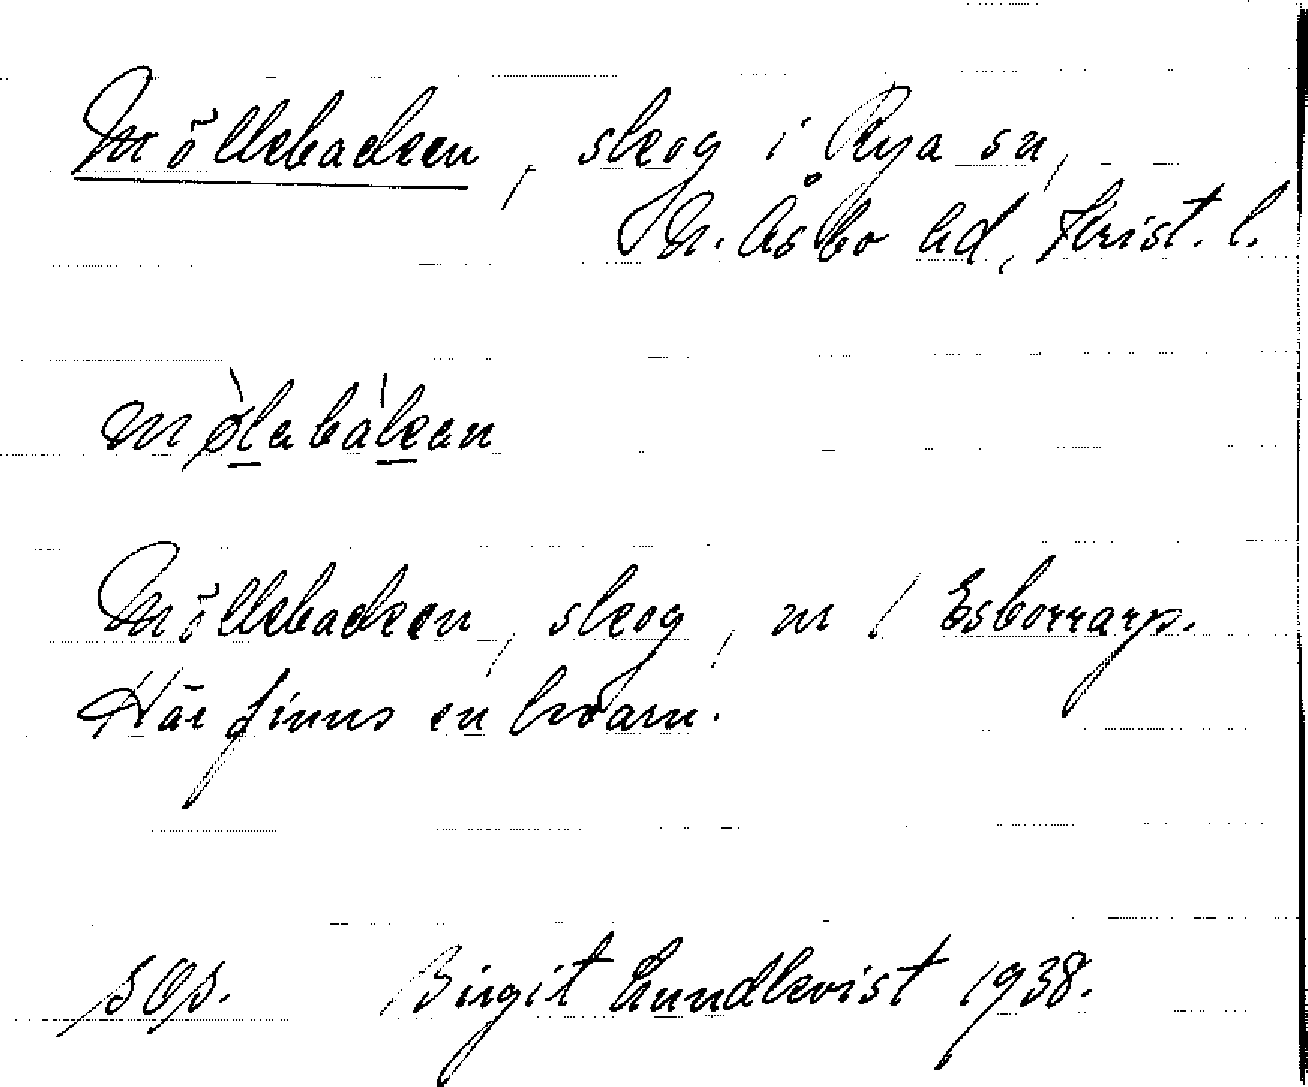 Möllebacken, skog i Rya sn,
N. Åsbo hd, Krist. l.
mø̀labákan
Möllebacken, skog, m / Esborrarp.
Här finns en kvarn.
SOS. Birgit Lundkvist 1938.